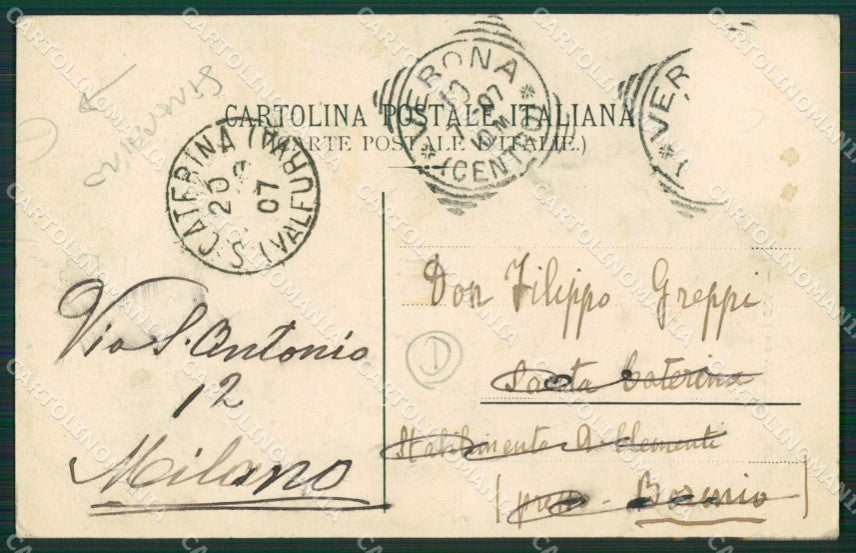 VERONA
10
7 07
10 M
(CENTRO)
VER
CARTOLINA POSTALE ITALIANA
(CARTE POSTALE D'ITALIE.)
S. CATERINA (VALFURVA)
20
07
Don Filippo Greppi
Santa Caterina
Stabilimento Clementi
(presso Bormio)
D
Via S. Antonio
12
Milano
CARTOLINOMANIA